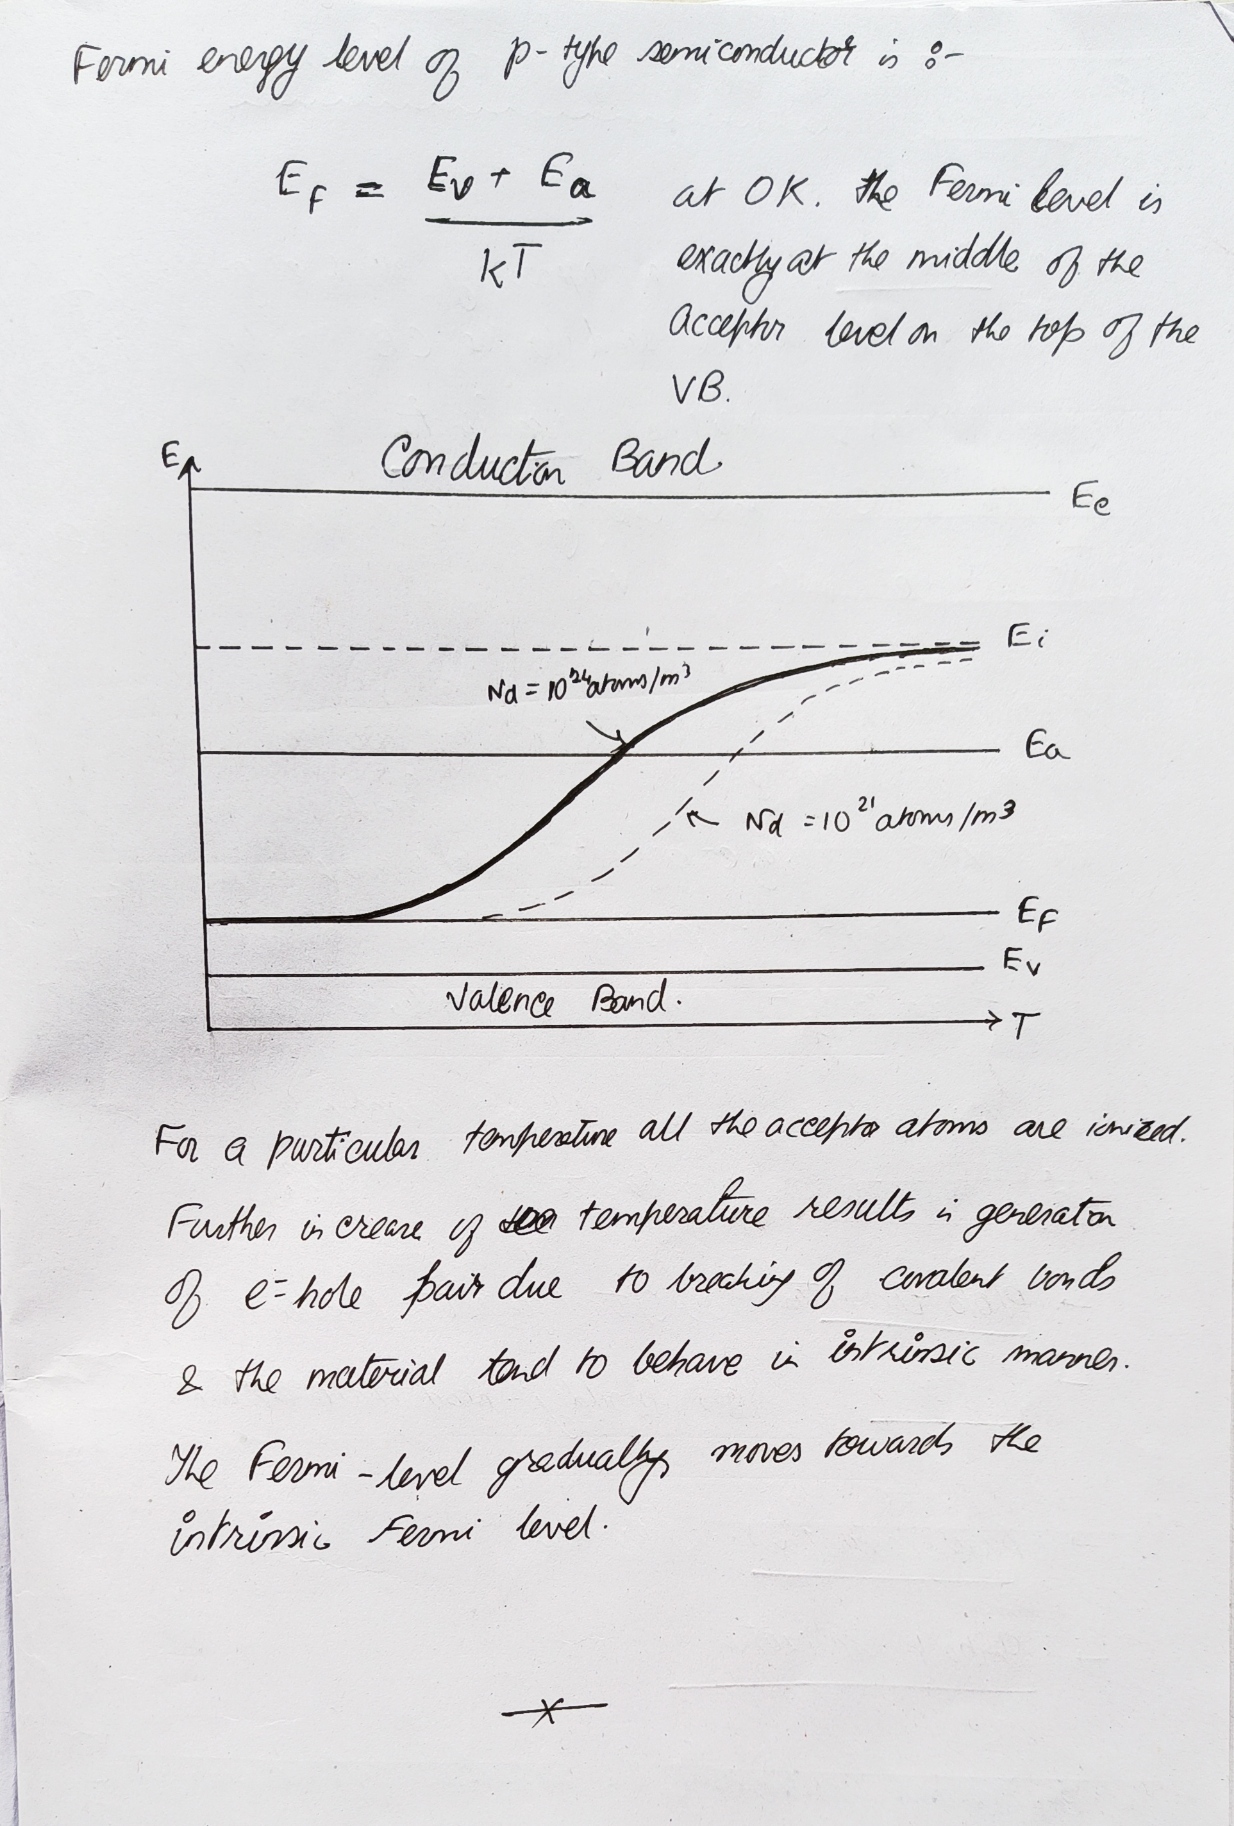 Fermi energy level of p-type semiconductor is :-
E_F = (E_v + E_a) / kT
at OK. the Fermi level is
exactly at the middle of the
Acceptor level on the top of the
VB.
E
Conduction Band
Ec
Ei
Nd = 10^24 atoms/m^3
Ea
Nd = 10^21 atoms/m^3
EF
Ev
Valence Band.
T
For a particular temperature all the acceptor atoms are ionized.
Further increase of temperature results in generation
of e- hole pair due to breaking of covalent bonds
& the material tend to behave in intrinsic manner.
The Fermi-level gradually moves towards the
intrinsic Fermi level.
x